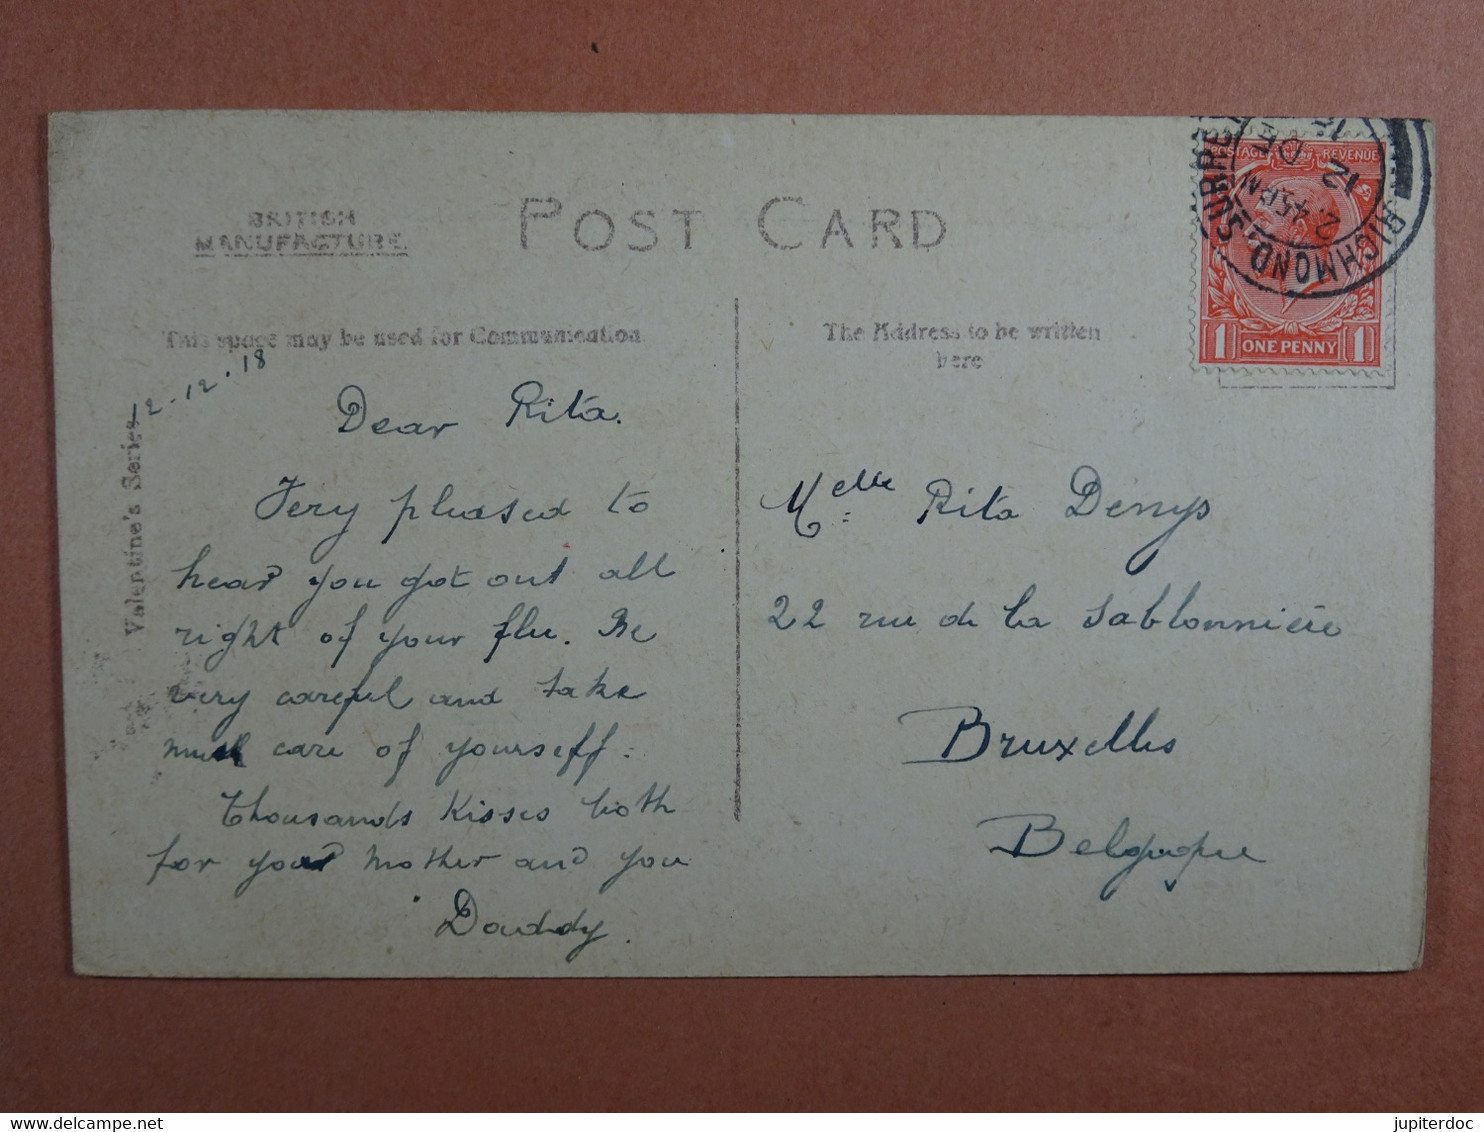 BRITISH
MANUFACTURE.
POST CARD
This space may be used for Communication
The Address to be written
here
Valentine's Series
12-12-18
Dear Rita.
Very pleased to
hear you got out all
right of your flu. Be
very careful and take
much care of yourself.
Thousands Kisses both
for your mother and you
Daddy.
Melle Rita Denys
22 rue de la Sablonnière
Bruxelles
Belgique
RICHMOND SURREY
2.45 PM
12 DE
POSTAGE REVENUE
1 ONE PENNY 1
www.delcampe.net
jupiterdoc